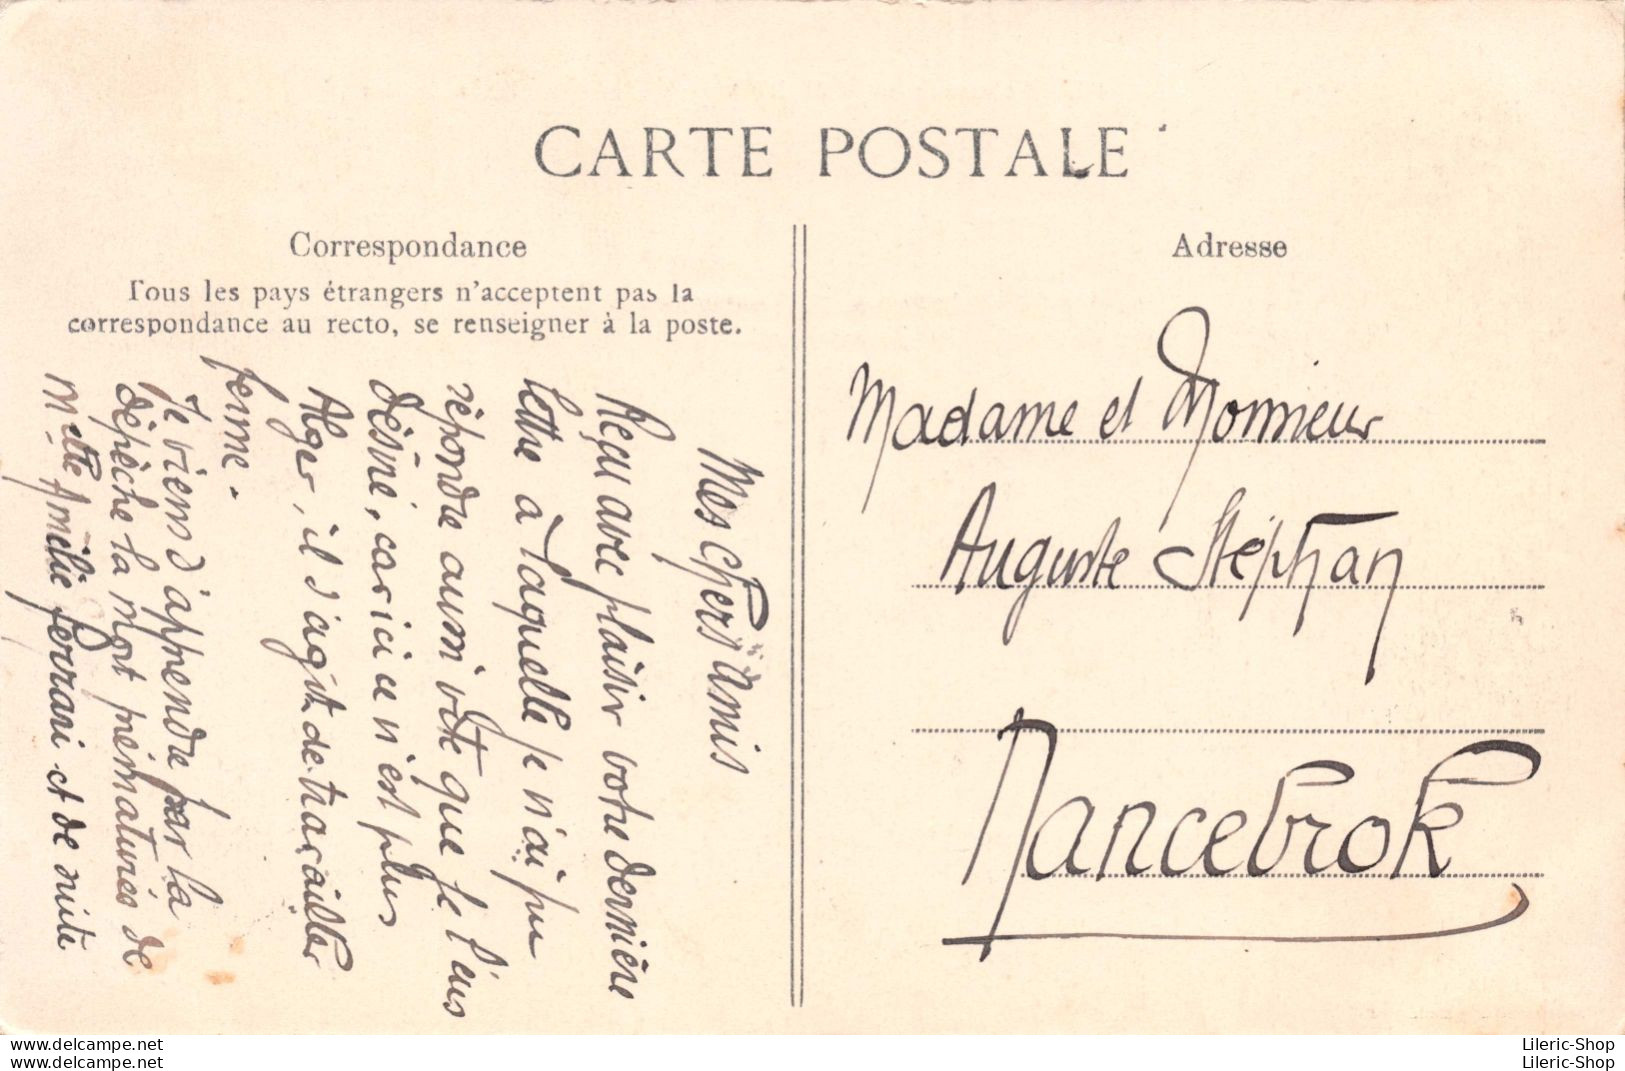 CARTE POSTALE
Correspondance
Tous les pays étrangers n'acceptent pas la
correspondance au recto, se renseigner à la poste.
Mes chers amis
Reçu avec plaisir votre dernière
lettre à laquelle je n'ai pu
répondre aussi vite que je l'eus
désiré, car ici ce n'est plus
Alger, il s'agit de travailler
ferme.
Je viens d'apprendre par la
dépêche la mort prématurée de
Melle Amélie Ferrari et de suite
Adresse
Madame et Monsieur
Auguste Stéphan
Nancebrok
delcampe.net
delcampe.net
Lileric-Shop
Lileric-Shop